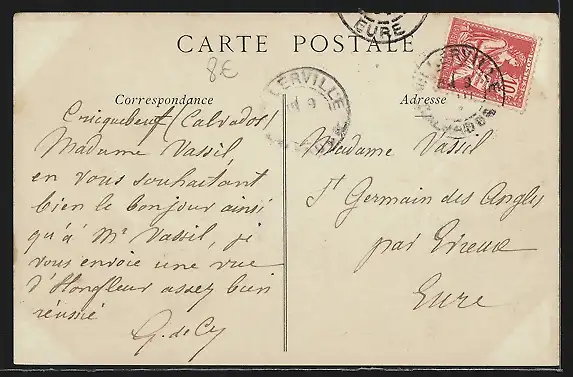 CARTE POSTALE
EURE
8€
LERVILLE
LLERVILLE
CALVADOS
10
Correspondance
Cricquebeuf (Calvados)
Madame Vassil,
en vous souhaitant
bien le bonjour ainsi
qu'à Mr Vassil, je
vous envoie une vue
d'Honfleur assez bien
réussie
G. de Cy
Adresse
Madame Vassil
St Germain des Angles
par Evreux
Eure